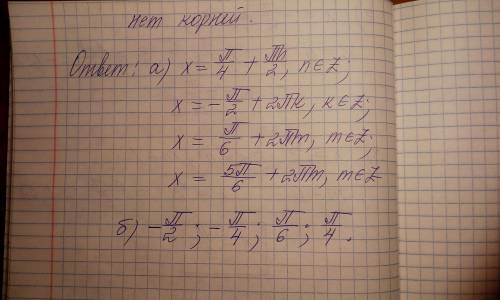 нет корней.
Ответ: а) x = π/4 + πn/2, n∈Z;
x = -π/2 + 2πk, k∈Z;
x = π/6 + 2πm, m∈Z;
x = 5π/6 + 2πm, m∈Z
б) -π/2; -π/4; π/6; π/4.